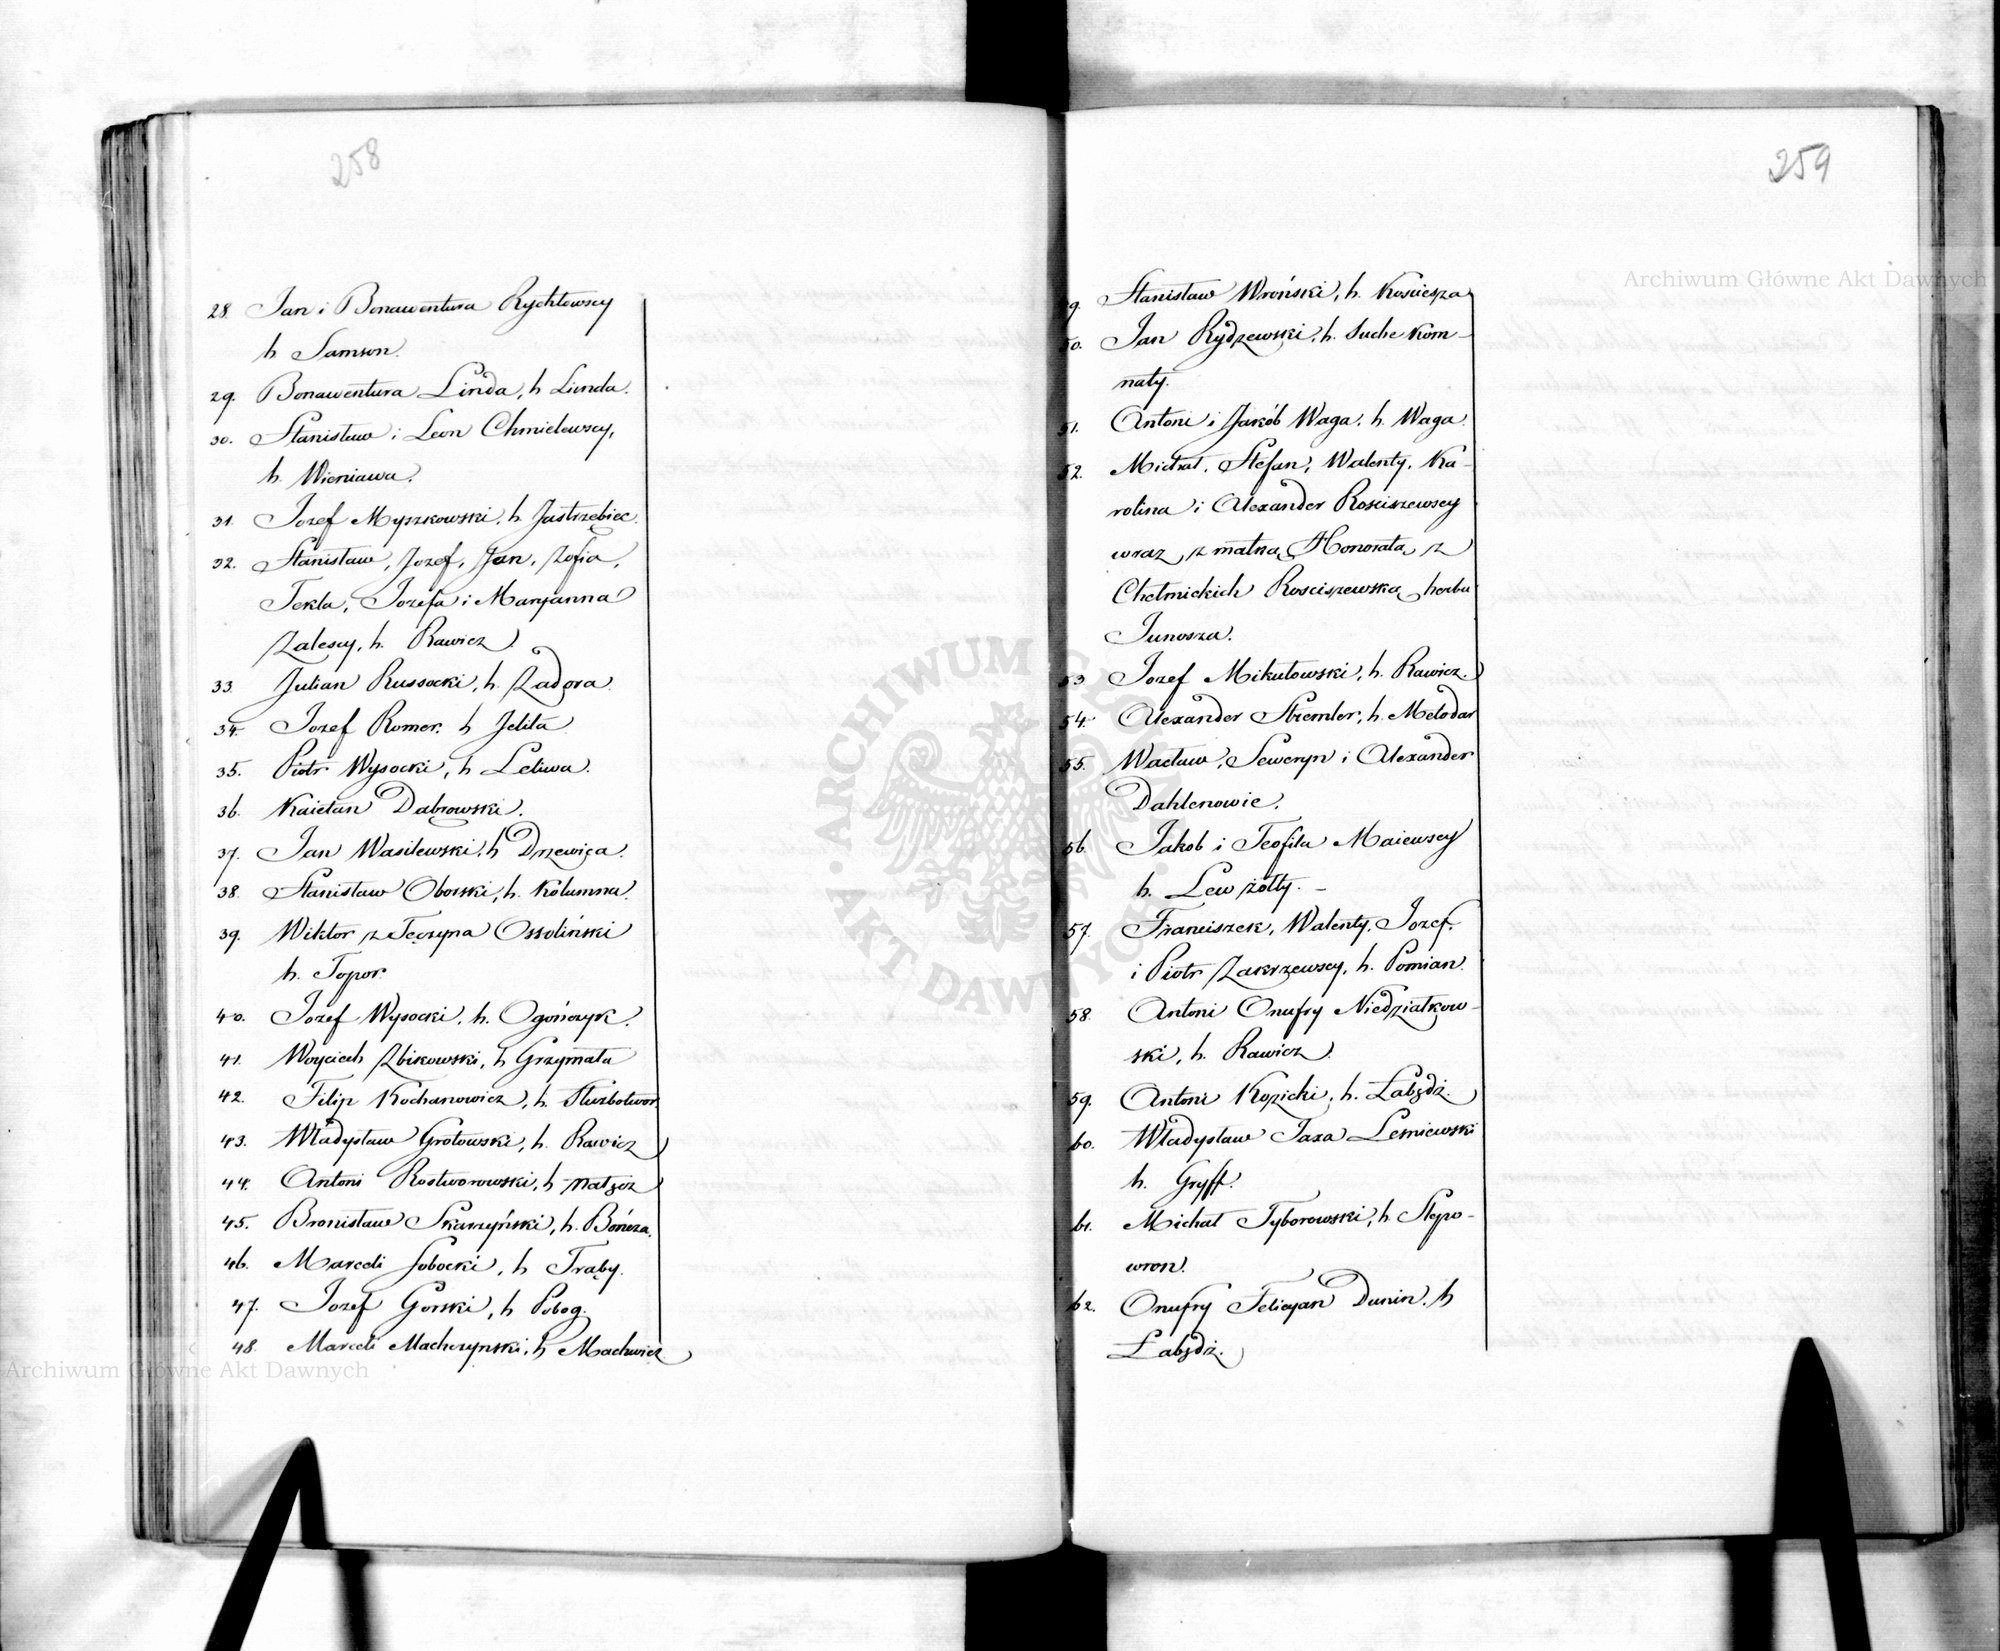 258
28. Jan i Bonawentura Rychłowscy
h Samson.
29. Bonawentura Linda, h Linda.
30. Stanisław i Leon Chmielewscy,
h. Wieniawa.
31. Jozef Myszkowski, h. Jastrzębiec.
32. Stanisław, Jozef, Jan, Zofia,
Tekla, Jozefa i Maryanna
Zalescy, h. Rawicz
33. Julian Russocki, h. Zadora.
34. Jozef Romer, h Jelita
35. Piotr Wysocki, h Leliwa.
36. Kaietan Dąbrowski.
37. Jan Wasilewski, h Drzewica.
38. Stanisław Oborski, h. Kolumna.
39. Wiktor z Tęczyna Ossoliński
h. Topor.
40. Jozef Wysocki, h. Ogończyk.
41. Woyciech Zbikowski, h Grzymała
42. Filip Kochanowicz, h. Szturbotwor
43. Władysław Grotowski, h. Rawicz
44. Antoni Rostworowski, h Nałęcz
45. Bronisław Skarzyński, h. Bończa.
46. Marceli Sobocki, h Trąby.
47. Jozef Gorski, h Pobog.
48. Marceli Machczynski, h Machwicz
259
49. Stanisław Wroński, h. Kosciesza
50. Jan Rydzewski, h. Suche Kom-
naty.
51. Antoni i Jakób Waga, h. Waga.
52. Michał, Stefan, Walenty, Ka-
rolina i Alexander Rosciszewscy
wraz z matką Honoratą z
Chełmickich Rosciszewską herbu
Junosza.
53. Jozef Mikułowski, h. Rawicz.
54. Alexander Stremler, h. Melodar
55. Wacław, Seweryn i Alexander
Dahlenowie.
56. Jakob i Teofila Maiewscy
h. Lew żołty. -
57. Franciszek, Walenty, Jozef,
i Piotr Zakrzewscy, h. Pomian.
58. Antoni Onufry Niedziałkow-
ski, h. Rawicz
59. Antoni Kozicki, h. Łabędź.
60. Władysław Jaxa Lesniewski
h. Gryff.
61. Michał Tyborowski, h Slepo-
wron.
62. Onufry Felicyan Dunin, h
Łabędź.
Archiwum Główne Akt Dawnych
Archiwum Główne Akt Dawnych
ARCHIWUM GŁÓWNE AKT DAWNYCH